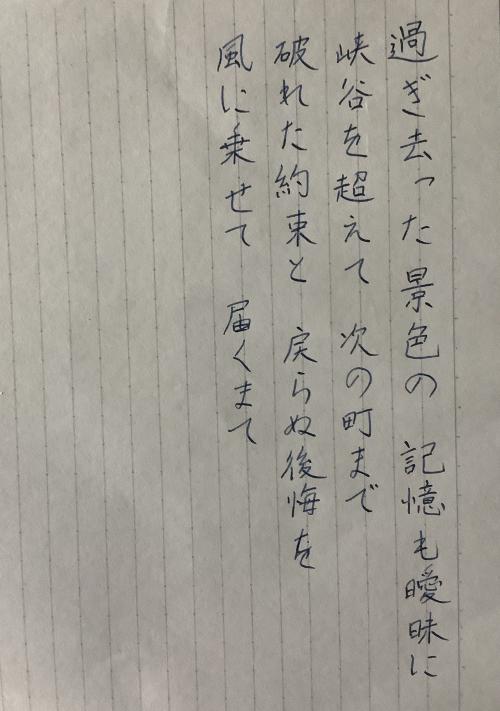 過ぎ去った景色の 記憶も曖昧に
峡谷を超えて 次の町まで
破れた約束と 戻らぬ後悔を
風に乗せて 届くまて